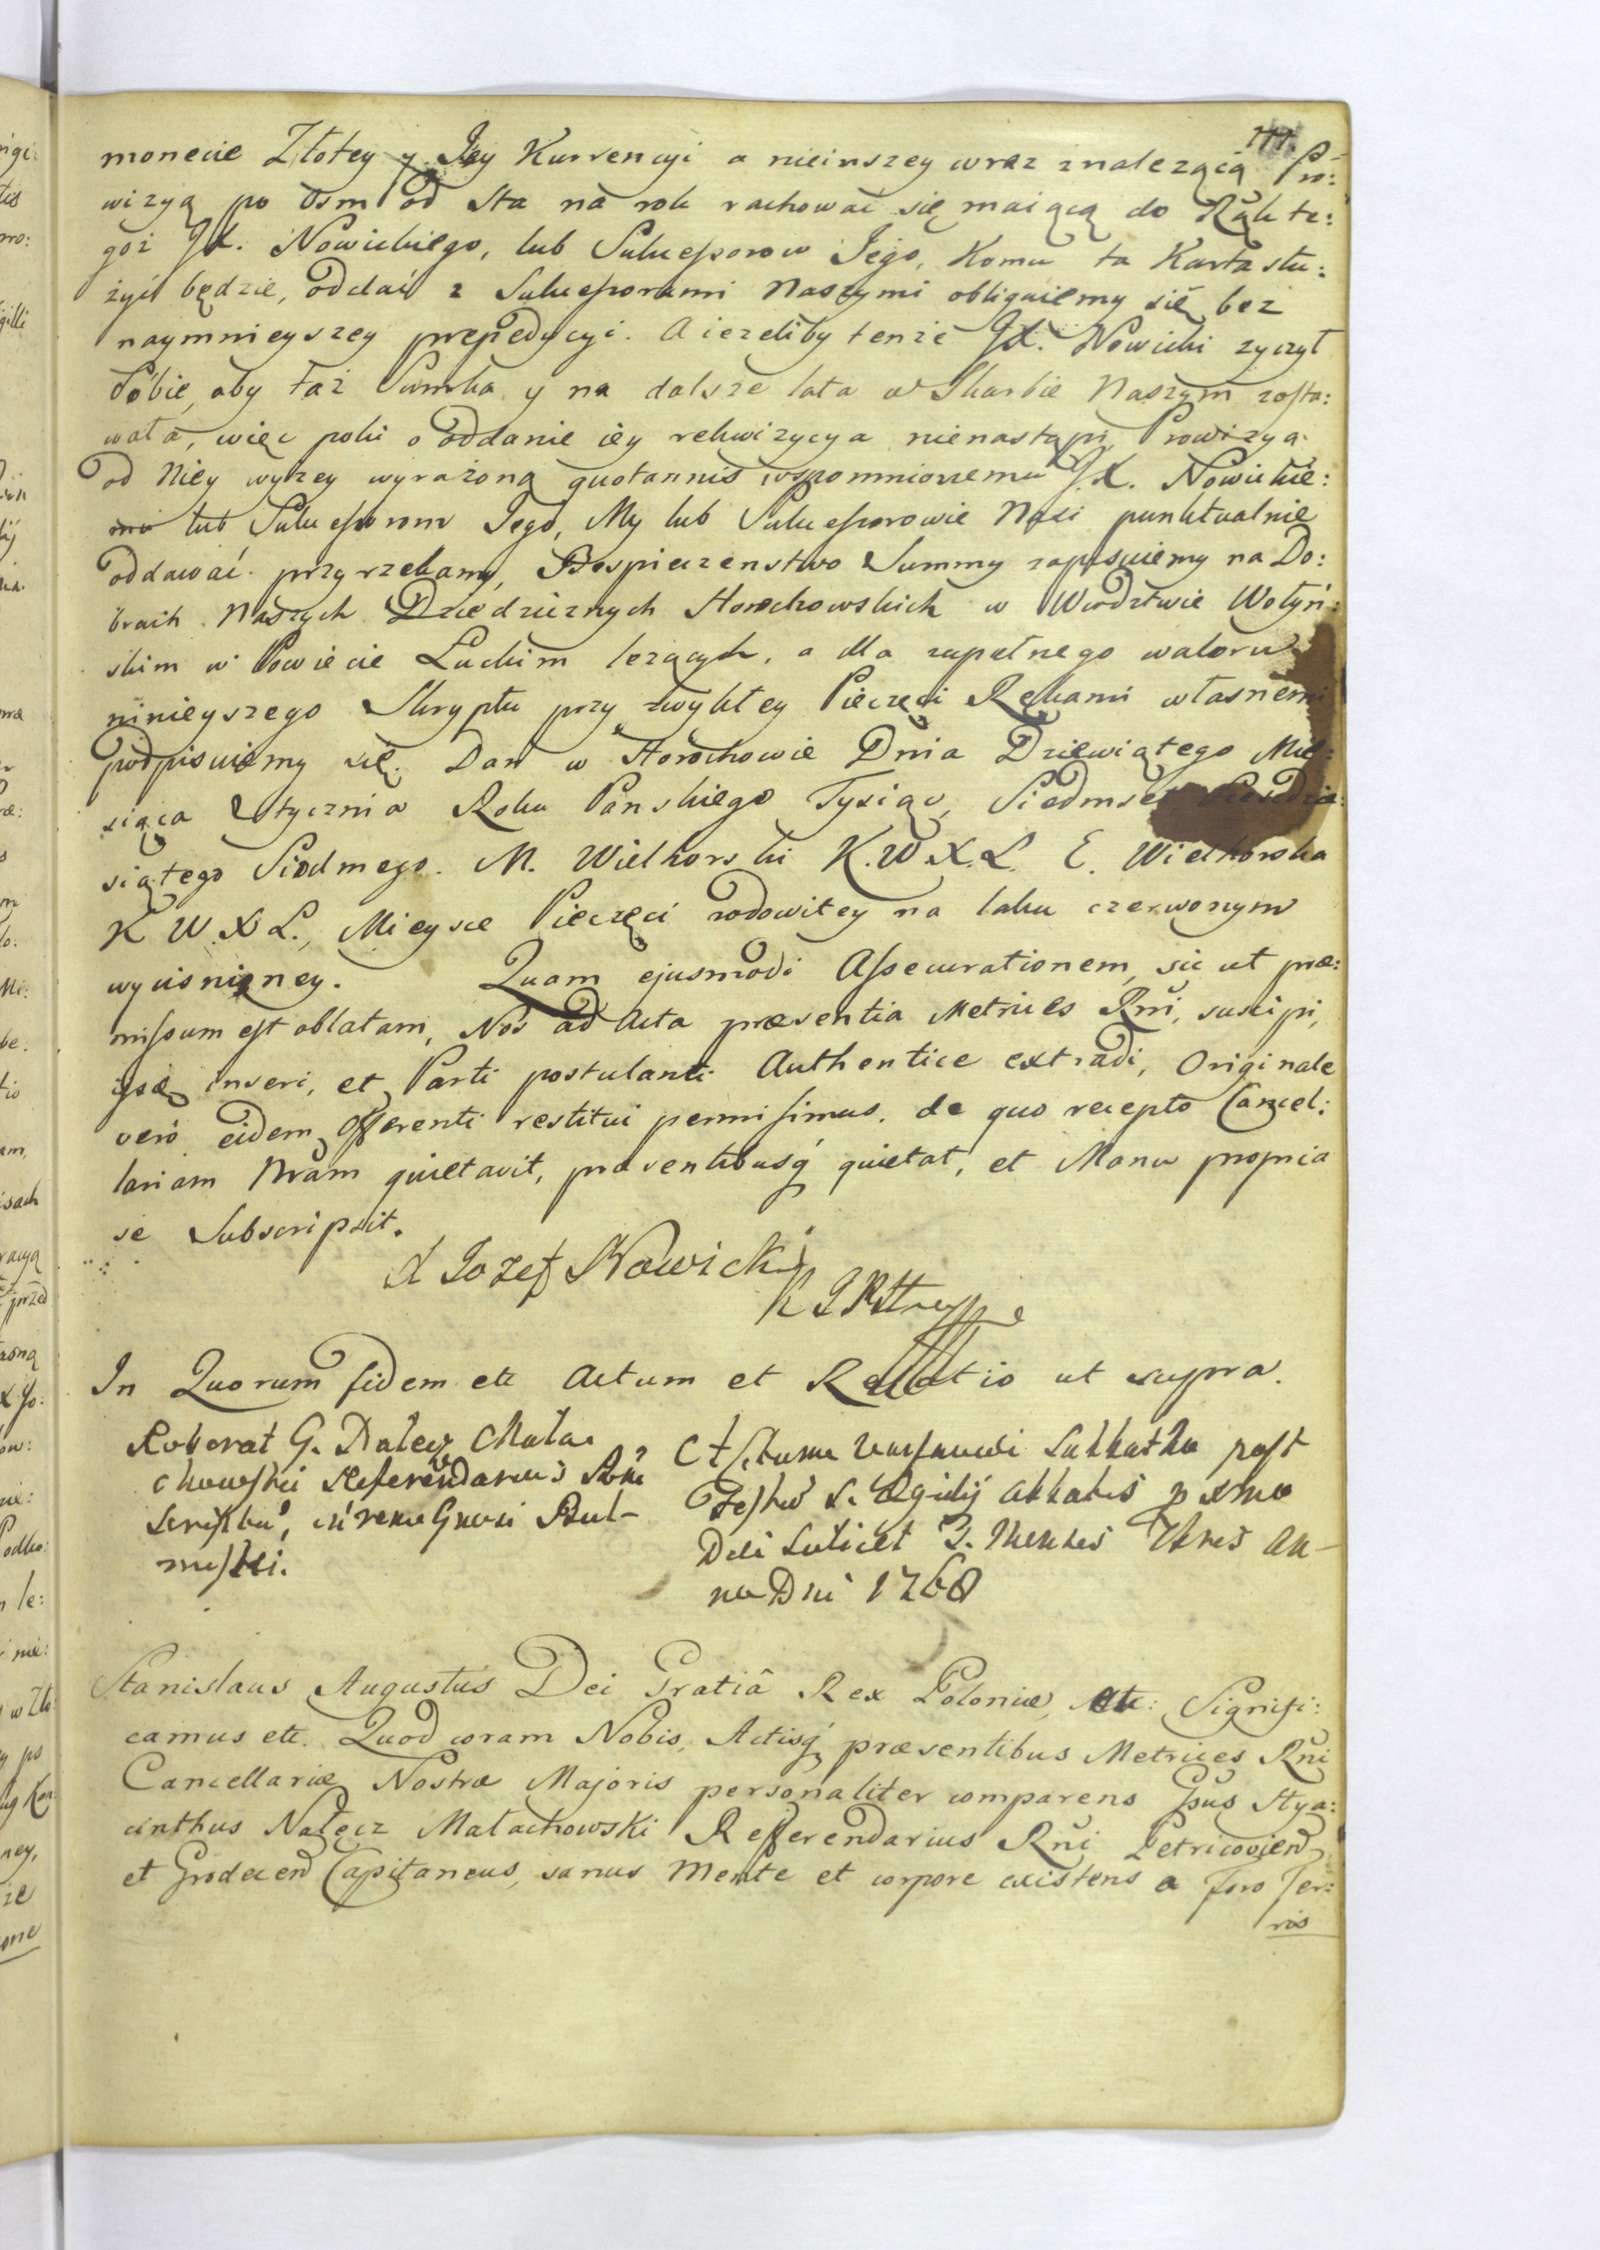 111.
monecie Złotey y Jey Kurrencyi a nieinszey wraz znalezącą Pro:
wizyą po osm od sta na rok rachować się maiącą do Rąk te:
goż JX. Nowickiego, lub Sukcessorow Jego, Komu ta Karta słu:
żyć będzie, oddać z Sukcessorami Naszymi obliguiemy się bez
naymnieyszey prepedycyi. A ieżeliby tenże JX. Nowicki zyczył
Sobie, aby taż Summa y na dalsze lata w Skarbie Naszym zosta:
wała, więc poki o oddanie iey rekwizycya nienastąpi, Prowizyą
od Niey wyżey wyrażoną quotannis wspomnionemu JX. Nowickie:
mu lub Sukcessorom Jego, My lub Sukcessorowie Nasi punktualnie
oddawać przyrzekamy, Bespieczenstwo Summy zapisuiemy na Do:
brach Naszych Dziedzicznych Horochowskich w Wwodztwie Wołyń:
skim w Powiecie Łuckim leżących, a dla zupełnego waloru
ninieyszego Skryptu przy zwykłey Pieczęci Rękami własnemi
podpisuiemy się. Dan w Horochowie Dnia Dziewiątego Mie:
siąca Stycznia Roku Panskiego Tysiąc Siedmset Szesdzie:
siątego Siodmego. M. Wielhorski K.W.X.L. E. Wielhorska
K W.X L., Mieysce Pieczęci rodowitey na laku czerwonym
wycisnioney. Quam ejusmodi Assecurationem, sic ut præ:
missum est oblatam, Nos ad Acta præsentia Metrices Rni, suscipi,
ijsq inseri, et Parti postulanti Authentice extradi, Originale
verò eidem Offerenti restitui permisimus. de quo recepto Cancel:
lariam Nram quietavit, præsentibusq quietat, et Manu propria
se Subscripsit.
X Jozef Nowicki
In Quorum fidem etc Actum et Relatio ut supra.
Roborat G. Nałęcz Mała
chowski Referendarius Rni
Scriptu, in rem Gnosi
Actum Varsaviæ Sabbatho post
Festū S. Ægidij Abbatis pxmo
Die Scilicet 3. Mensis 7bris An-
no Dni 1768
Stanislaus Augustus Dei Gratiâ Rex Poloniæ, etc: Signifi:
camus etc. Quod coram Nobis, Actisq præsentibus Metrices Rni
Cancellariæ Nostræ Majoris personaliter comparens Gsus Hya:
cinthus Nałęcz Małachowski Referendarius Rni Petricovien
et Grodecen Capitaneus, sanus Mente et corpore existens a Foro Ter:
ris